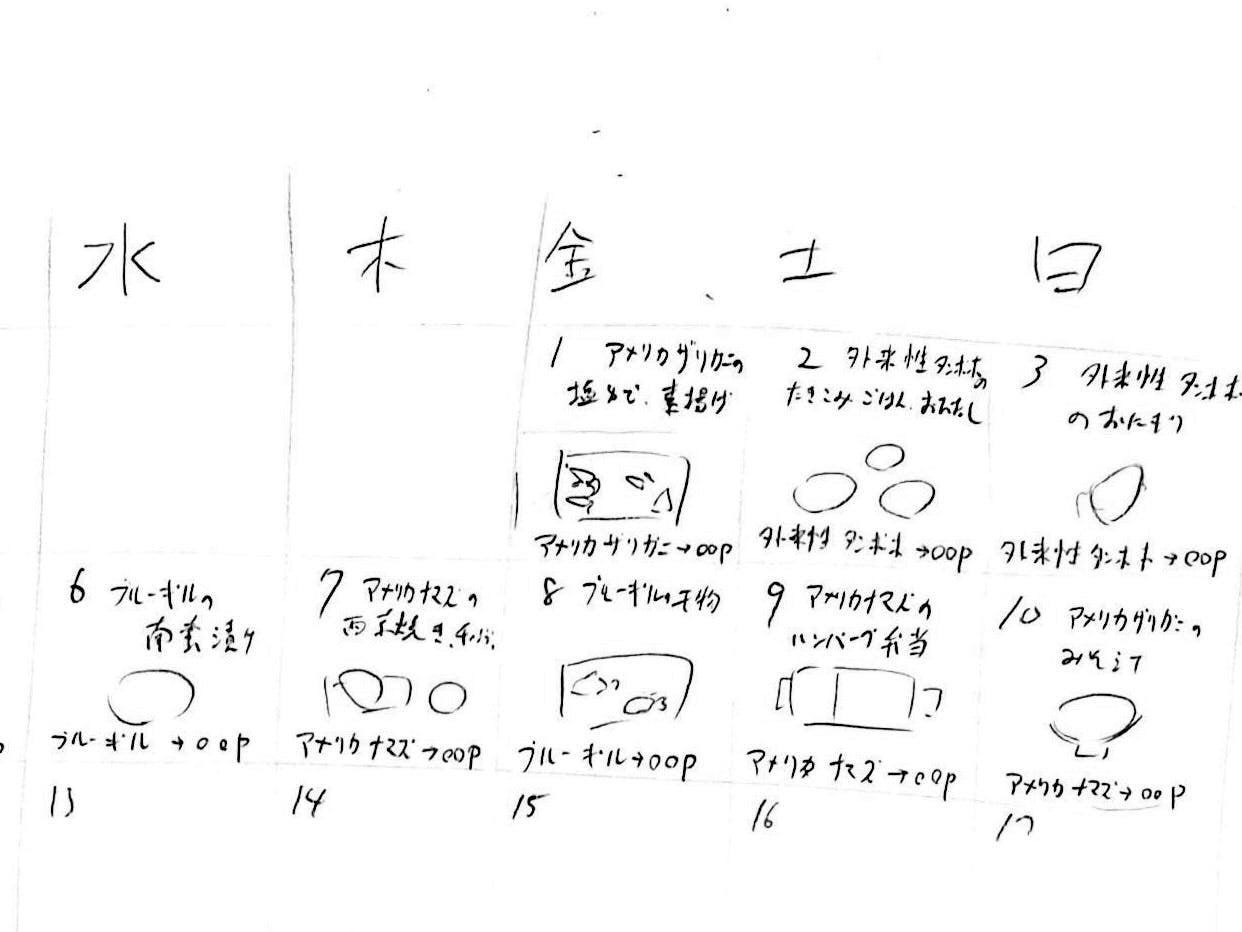 水 木 金 土 日
1 アメリカザリガニの
塩ゆで、素揚げ
アメリカザリガニ→○○P
2 外来性タンポポの
たきこみごはん、おひたし
外来性タンポポ→○○P
3 外来性タンポポ
のおにぎり
外来性タンポポ→○○P
6 ブルーギルの
南蛮漬け
ブルーギル→○○P
7 アメリカナマズの
西京焼き、
アメリカナマズ→○○P
8 ブルーギルの干物
ブルーギル→○○P
9 アメリカナマズの
ハンバーグ弁当
アメリカナマズ→○○P
10 アメリカザリガニの
みそ
アメリカナマズ→○○P
13 14 15 16 17